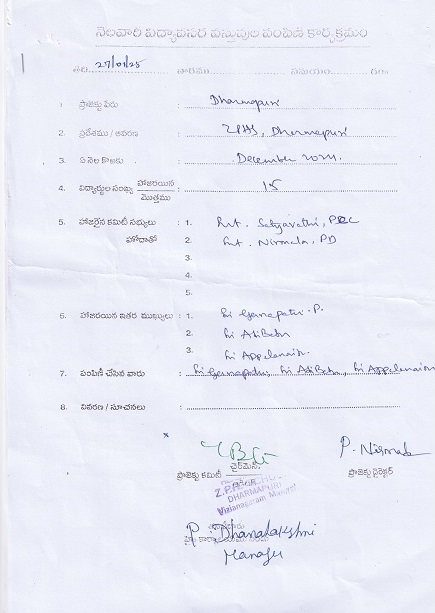 నెలవారీ విద్యావసర వస్తువుల పంపిణీ కార్యక్రమం
తేది 27/01/25 వారము సమయం గం॥
1. ప్రాజెక్టు పేరు : Dharmapuri
2. ప్రదేశము / ఆవరణ : ZPHS, Dharmapuri
3. ఏ నెల కొఱకు : December 2024.
4. విద్యార్థుల సంఖ్య హాజరయిన / మొత్తము : 15
5. హాజరైన కమిటీ సభ్యులు : 1. Smt. Satyavathi,
హోదాతో 2. Smt. Nirmala, PD
3.
4.
5.
6. హాజరయిన ఇతర ముఖ్యులు : 1. Sri Ganapathi. P.
2. Sri AdiBabu
3. Sri Appalanaidu.
7. పంపిణీ చేసిన వారు : Sri Ganapathi, Sri AdiBabu, Sri Appalanaidu
8. వివరణ / సూచనలు :
x
P. Nirmala
ప్రాజెక్టు కమిటీ చైర్‌మెన్ ప్రాజెక్టు డైరెక్టర్
DHARMAPURI
Vizianagaram Mandal
P. Dhanalakshmi
Manager